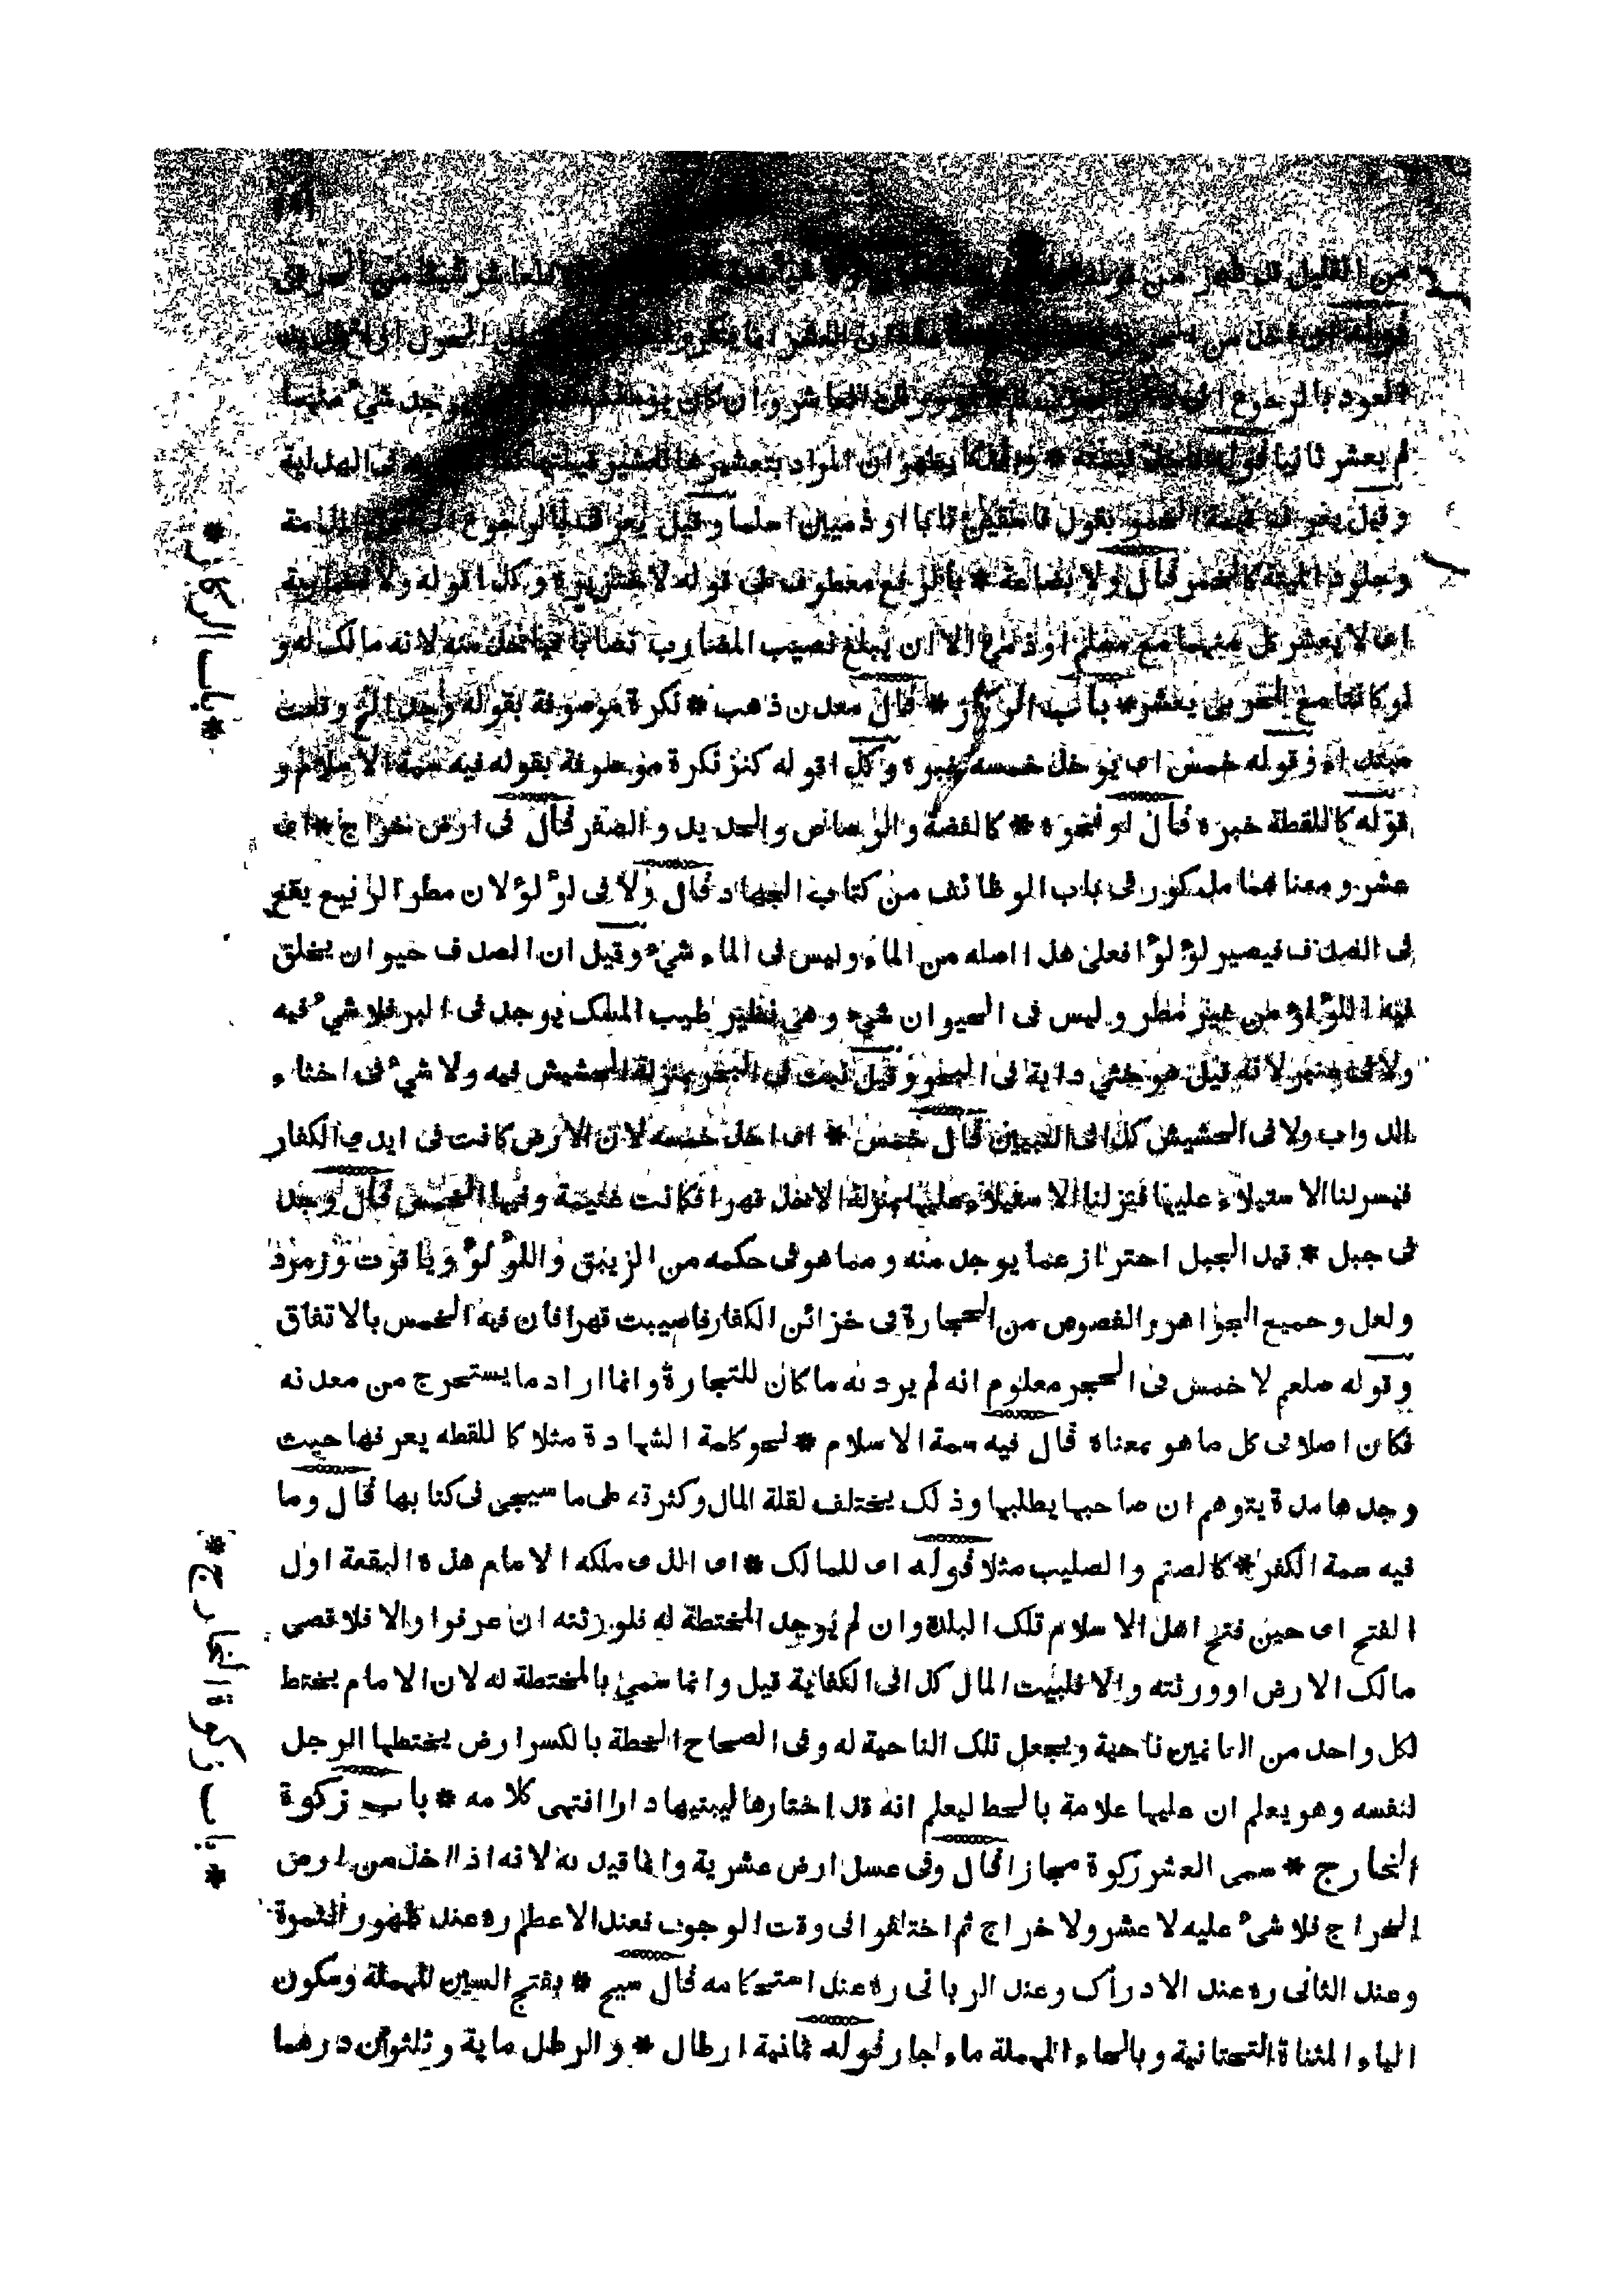 من القليل قد ظهر من
قوله
العود بالرجوع وان كان شيء منهما
لم يعشر ثانيا قوله ان المراد بتعشيرها تعشير قيمتها فى الهداية
وقيل يعرف قيمة الخمر بقول فاسقين تابا او ذميين اسلما وقيل يعرف بالرجوع الى اهل الذمة
وجلود الميتة كالخمر قال ولا بضاعة * بالرفع معطوف على قوله لا خنزيره وكذا قوله ولا مضاربة
اى لا يعشر كل منهما مع مسلم او ذمى الا ان يبلغ نصيب المضارب نصابا فياخذ منه لانه مالك له و
لو كانتا مع الحربى يعشر * باب الركاز * قال معدن ذهب * نكرة موصوفة بقوله وجد الخ وقعت
مبتدأ وقوله خمس اى يوخذ خمسه خبره وكذا قوله كنز نكرة موصوفة بقوله فيه سمة الاسلام و
قوله كاللقطة خبره قال او نحوه * كالفضة والرصاص والحديد والصفر قال فى ارض خراج * اى
عشر ومعناهما مذكور فى باب الوظائف من كتاب الجهاد قال ولا فى لؤلؤ لان مطر الربيع يقع
فى الصدف فيصير لؤلؤا فعلى هذا اصله من الماء وليس فى الماء شيء وقيل ان الصدف حيوان يخلق
فيه اللؤلؤ من غير مطر وليس فى الحيوان شيء وهى نظير ظبيب المسك يوجد فى البر فلا شيء فيه
ولا فى عنبر لانه قيل هو خثى دابة فى البحر وقيل نبت فى البحر بمنزلة الحشيش فيه ولا شيء فى اخثاء
الدواب ولا فى الحشيش كذا فى التبيين قال خمس * اى اخذ خمسه لان الارض كانت فى ايدى الكفار
فيسر لنا الاستيلاء عليها فنزلنا الاستيلاء عليها بمنزلة الاخذ قهرا فكانت غنيمة وفيها الخمس قال وجد
فى جبل * قيد الجبل احتراز عما يوجد منه ومما هو فى حكمه من الزيبق واللؤلؤ وياقوت وزمرد
ولعل وجميع الجواهر والفصوص من الحجارة فى خزائن الكفار فاصيبت قهرا فان فيه الخمس بالاتفاق
وقوله صلعم لا خمس فى الحجر معلوم انه لم يرد به ماكان للتجارة وانما اراد ما يستخرج من معدنه
فكان اصلا فى كل ما هو بمعناه قال فيه سمة الاسلام * نحو كلمة الشهادة مثلا كاللقطه يعرفها حيث
وجدها مدة يتوهم ان صاحبها يطلبها وذلك يختلف لقلة المال وكثرته على ما سيجى فى كتابها قال وما
فيه سمة الكفر * كالصنم والصليب مثلا قوله اى للمالك * اى الذى ملكه الامام هذه البقعة اول
الفتح اى حين فتح اهل الاسلام تلك البلدة وان لم يوجد المختطة له فلورثته ان عرفوا والا فلاقصى
مالك الارض او ورثته والا فلبيت المال كذا فى الكفاية قيل وانما سمى بالمختطة له لان الامام يختط
لكل واحد من الغانمين ناحية ويجعل تلك الناحية له وفى الصحاح الخطة بالكسر ارض يختطها الرجل
لنفسه وهو يعلم ان عليها علامة بالخط ليعلم انه قد اختارها ليبنيها دارا انتهى كلامه * باب زكوة
الخارج * سمى العشر زكوة مجازا قال وفى عسل ارض عشرية وانما قيد به لانه اذا اخذ من ارض
الخراج فلا شىء عليه لا عشر ولا خراج ثم اختلفوا فى وقت الوجوب فعند الاعظم ره عند ظهور الثمرة
وعند الثانى ره عند الادراك وعند الربانى ره عند استحكامه قال سيح * بفتح السين المهملة وسكون
الياء المثناة التحتانية وبالحاء المهملة ماء جار قوله ثمانية ارطال * والرطل ماية وثلثون درهما
* باب الركاز *
* باب زكوة الخارج *